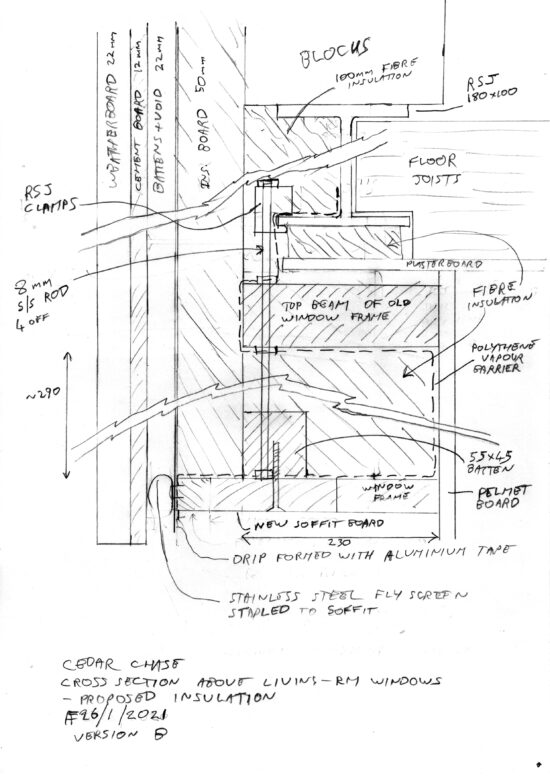 BLOCKS
100MM FIBRE
INSULATION
RSJ
180X100
WEATHERBOARD 22MM
CEMENT BOARD 12MM
BATTENS+VOID 22MM
INS: BOARD 50MM
FLOOR
JOISTS
RSJ
CLAMPS
PLASTERBOARD
8MM
S/S ROD
4 OFF
TOP BEAM OF OLD
WINDOW FRAME
FIBRE
INSULATION
POLYTHENE
VAPOUR
BARRIER
~290
55X45
BATTEN
WINDOW
FRAME
PELMET
BOARD
NEW SOFFIT BOARD
230
DRIP FORMED WITH ALUMINIUM TAPE
STAINLESS STEEL FLY SCREEN
STAPLED TO SOFFIT
CEDAR CHASE
CROSS SECTION ABOVE LIVING-RM WINDOWS
- PROPOSED INSULATION
26/1/2021
VERSION